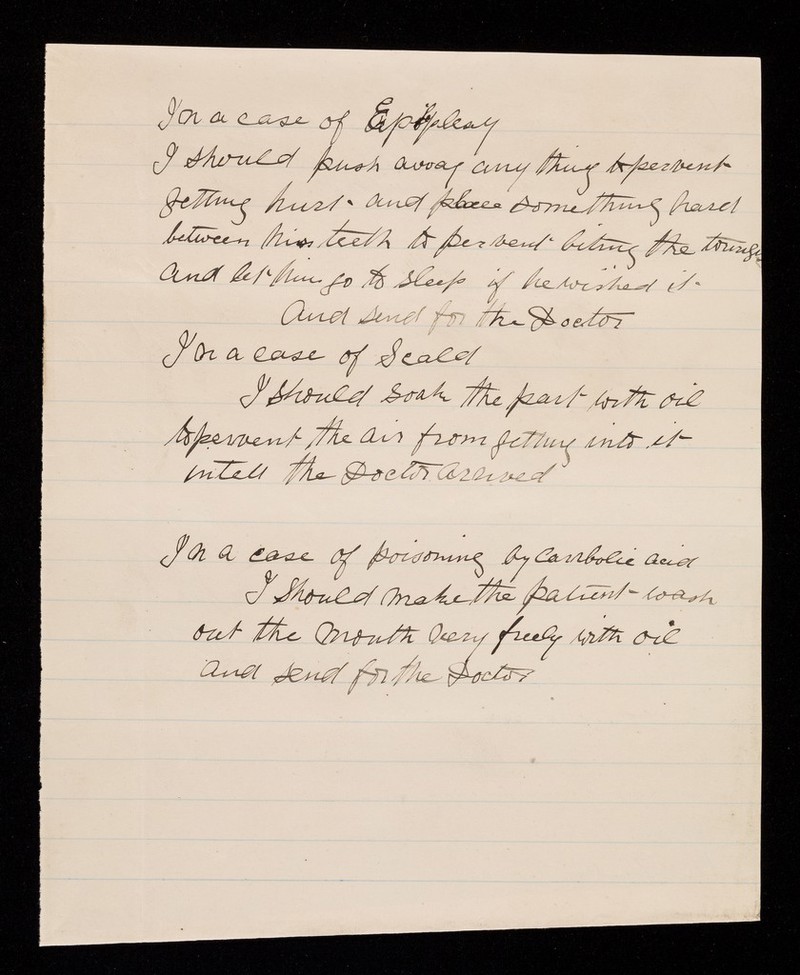 In a case of Epipleay
I should push away any thing to pervent
getting hurt and place something hard
between his teeth to pervent biting the tounge
and let him go to sleep if he wished it
And send for the Doctor
In a case of Scald
I should soak the part with oil
to pervent the air from getting into it
intell the Doctor arrived
In a case of poisoning by Carrbolic acid
I should make the patient wash
out the mouth very freely with oil
and send for the Doctor